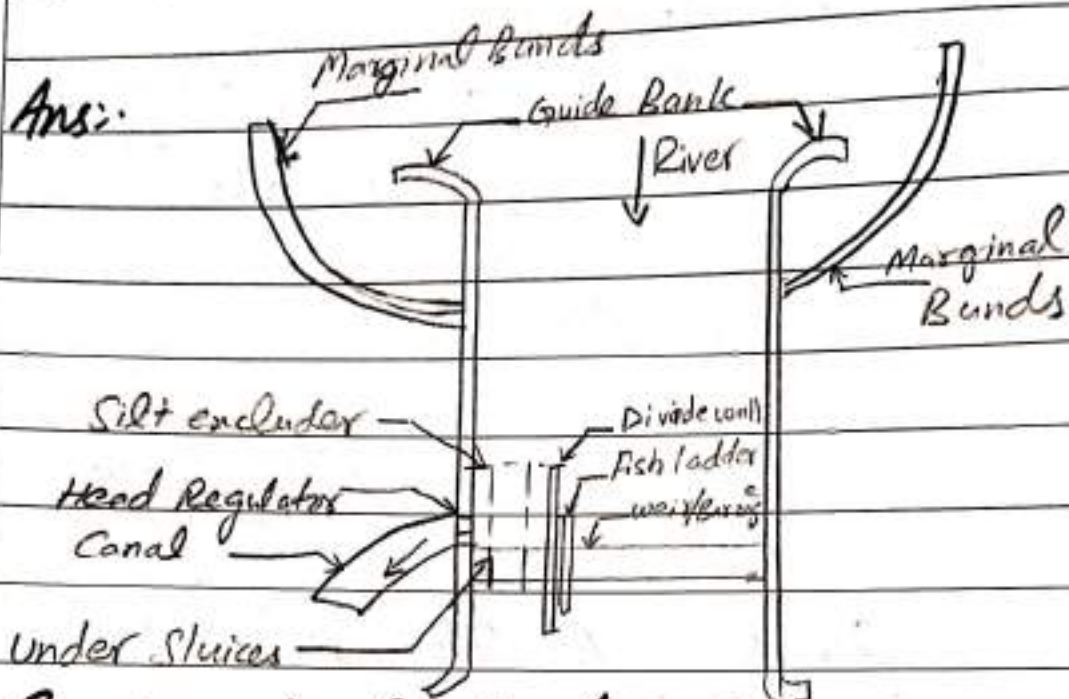 Marginal Bunds
Ans:-
Guide Bank
River
Marginal
Bunds
Silt excluder
Divide wall
Fish ladder
Head Regulator
Canal
under Sluices